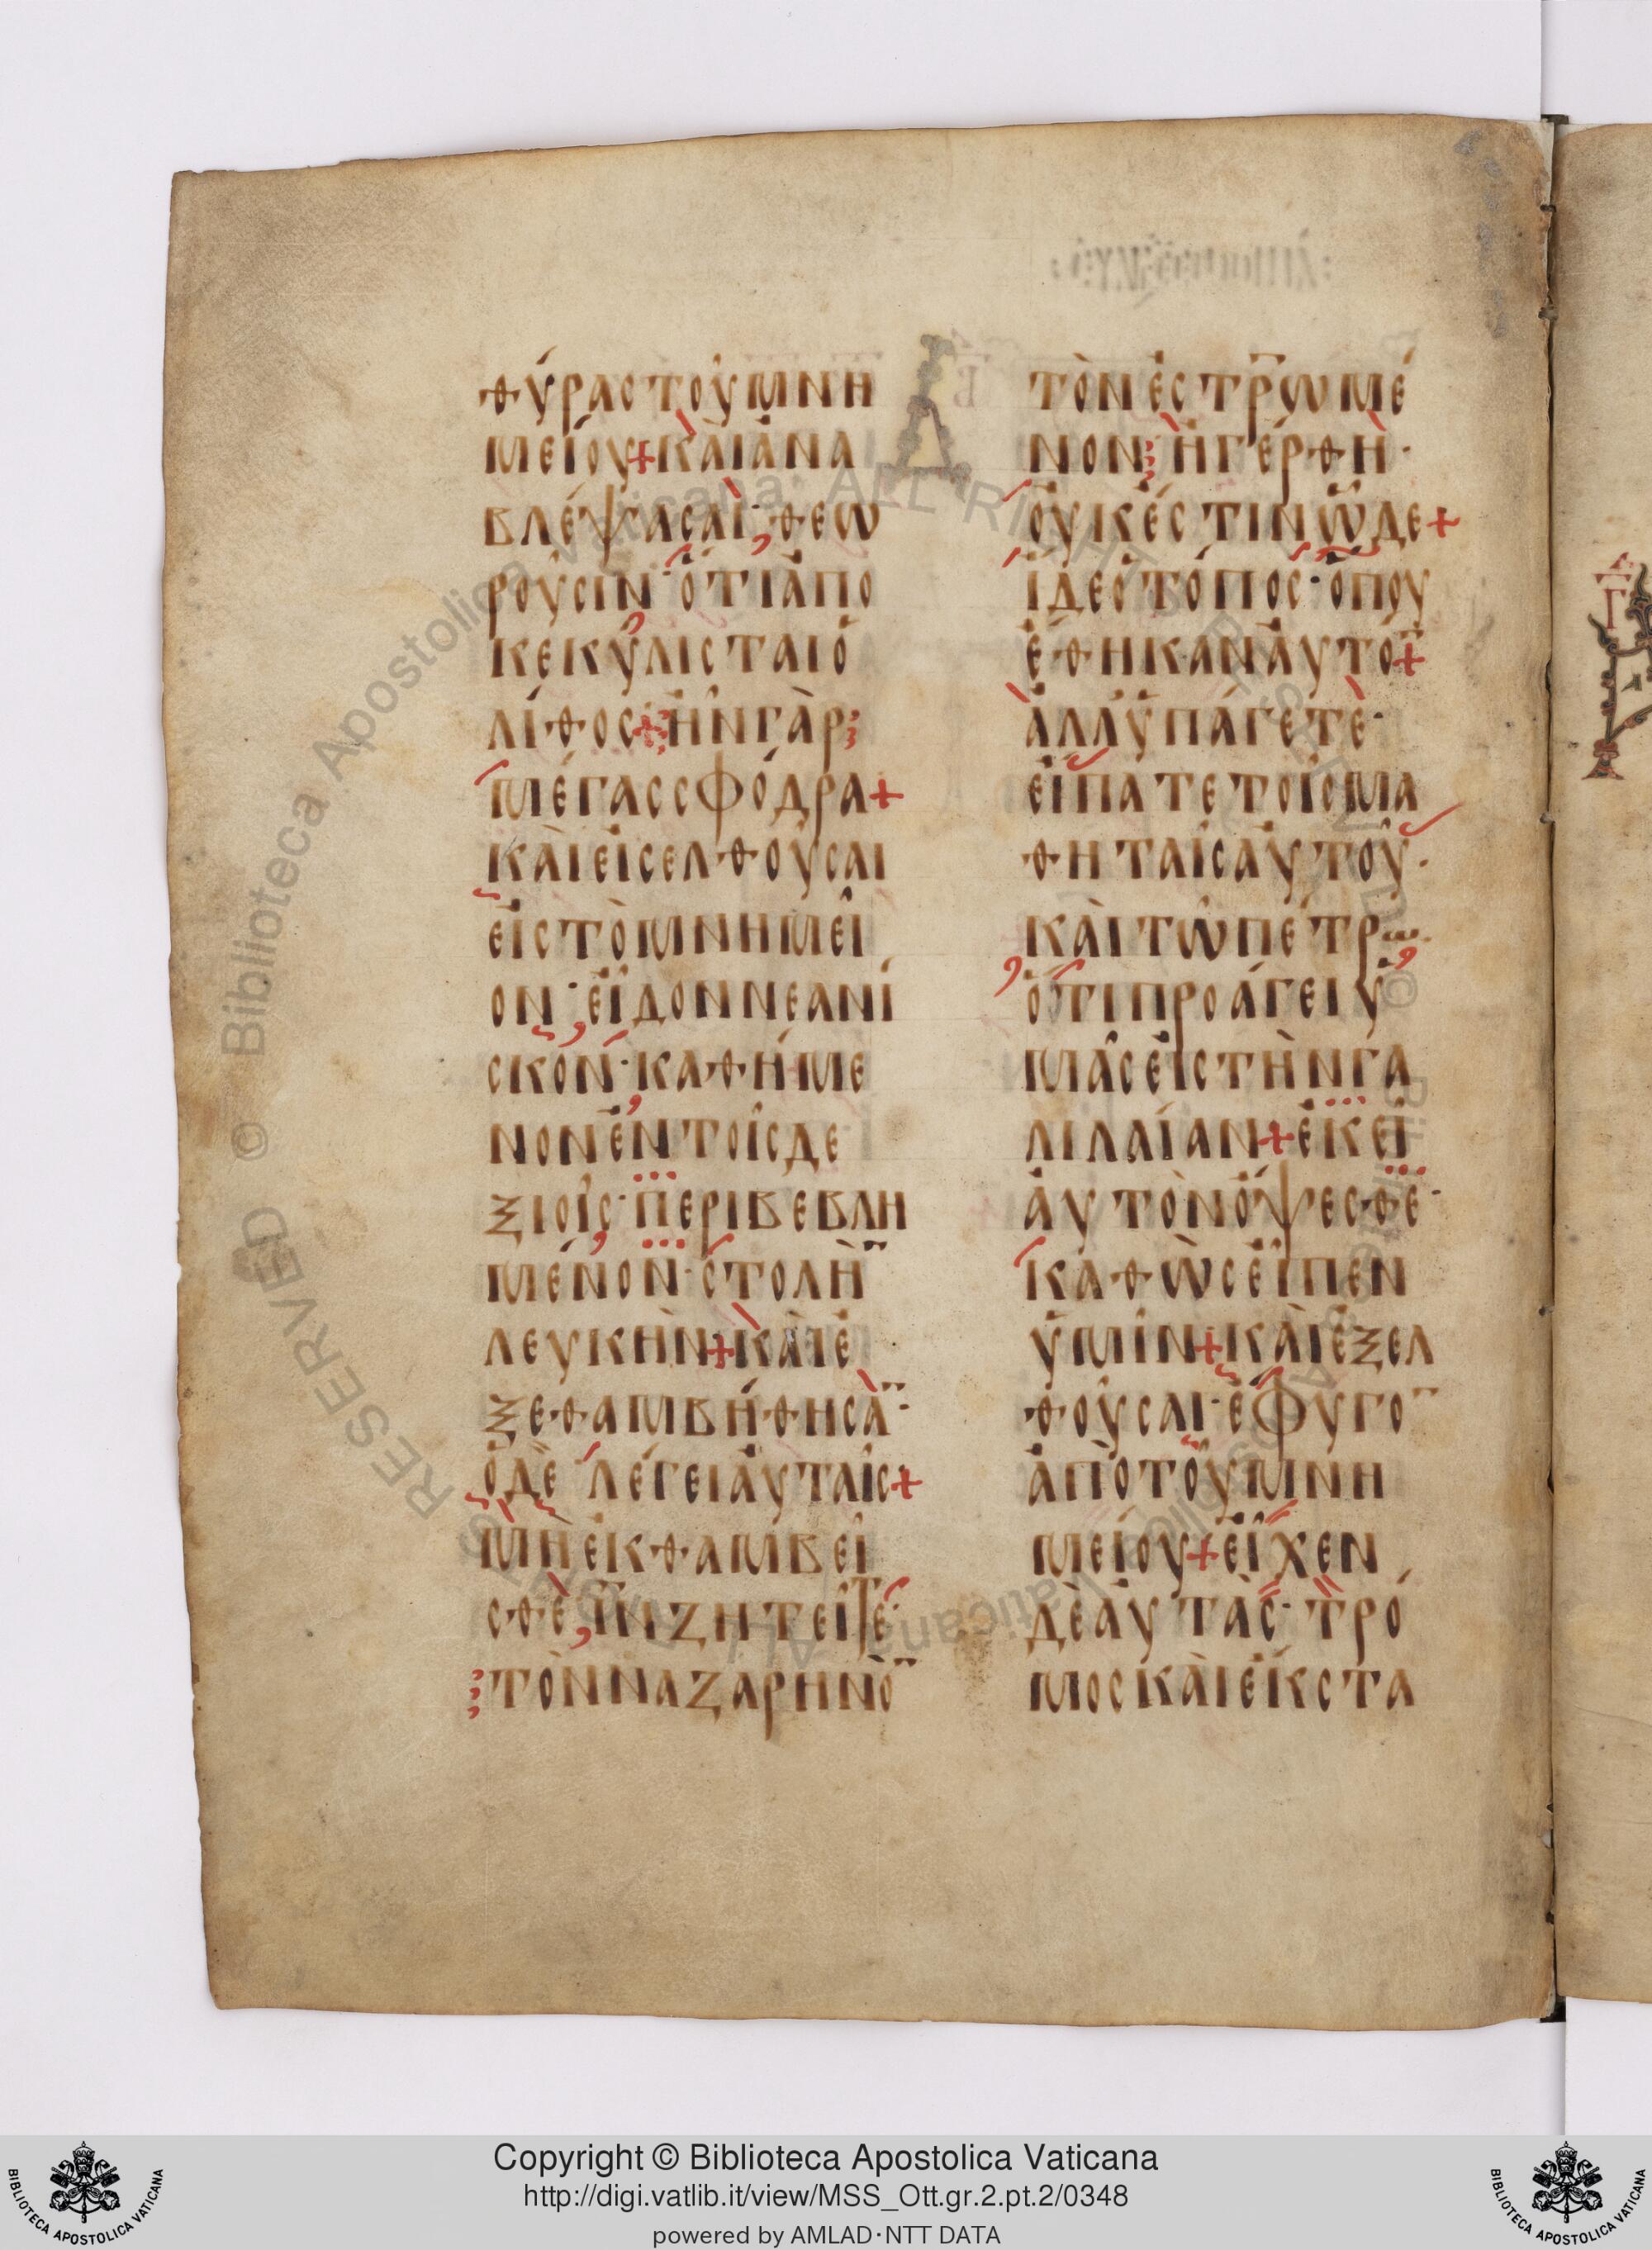 θύρας τοῦ μνη
μείου + κὰι ἀνα
βλέψασαι· θεω
ροῦσιν· ὅτι ἀπο
κεκύλισται ὁ
λίθος + ἦν γὰρ
μέγας σφόδρα +
κὰι εἰσελθοῦσαι
εἰς τὸ μνημεῖ
ον· εἶδον νεανί
σκον· καθήμε
νον ἐν τοῖς δε
ξιοῖς· περιβεβλη
μένον· στολὴ̄
λευκὴν + κὰι ἐ
ξεθαμβήθησᾱ·
ὁ δὲ λέγει ἀυταῖς +
μὴ ἐκθαμβεῖ
σθὲ, ῑν ζητεῖτε·
τὸν ναζαρηνὸ̄
τὸν ἐστρ̄ωμέ
νον ἠγέρθη·
οὐκ ἔστιν ὧδε +
ἴδε ὁ τόπος· ὅπου
ἔθηκαν ἀυτό̄ +
ἀλλ ὑπάγετε·
εἴπατε τοῖς μα
θηταῖς ἀυτοῦ·
κὰι τῶ πέτρω·
ὅτι προάγει ὑ
μᾶς εἰς τὴν γα
λιλαίαν + ἐκεῖ
ἀυτὸν ὄψεσθε·
καθὼς εἶπεν
ὑμῖν + κὰι ἐξελ
θοῦσαι· ἔφυγο̄
ἀπὸ τοῦ μνη
μείου + εἶχεν
δὲ ἀυτὰς· τρό
μος κὰι ἔκστα
Copyright © Biblioteca Apostolica Vaticana
http://digi.vatlib.it/view/MSS_Ott.gr.2.pt.2/0348
powered by AMLAD·NTT DATA
BIBLIOTECA APOSTOLICA VATICANA
BIBLIOTECA APOSTOLICA VATICANA